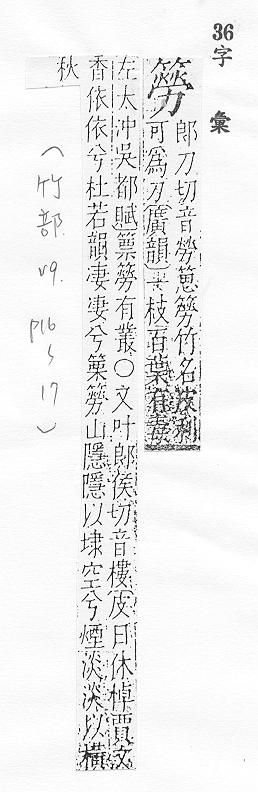 36
字彙
簩 郎刀切音勞䉋簩竹名茂利
可爲刀廣韻一枝百葉有毒
左太冲吳都賦篥簩有叢〇文叶郎侯切音樓皮日休悼賈文
香依依兮杜若韻凄凄兮篥簩山隱隱以埭空兮煙淡淡以橫
秋
(竹部 p16 17)